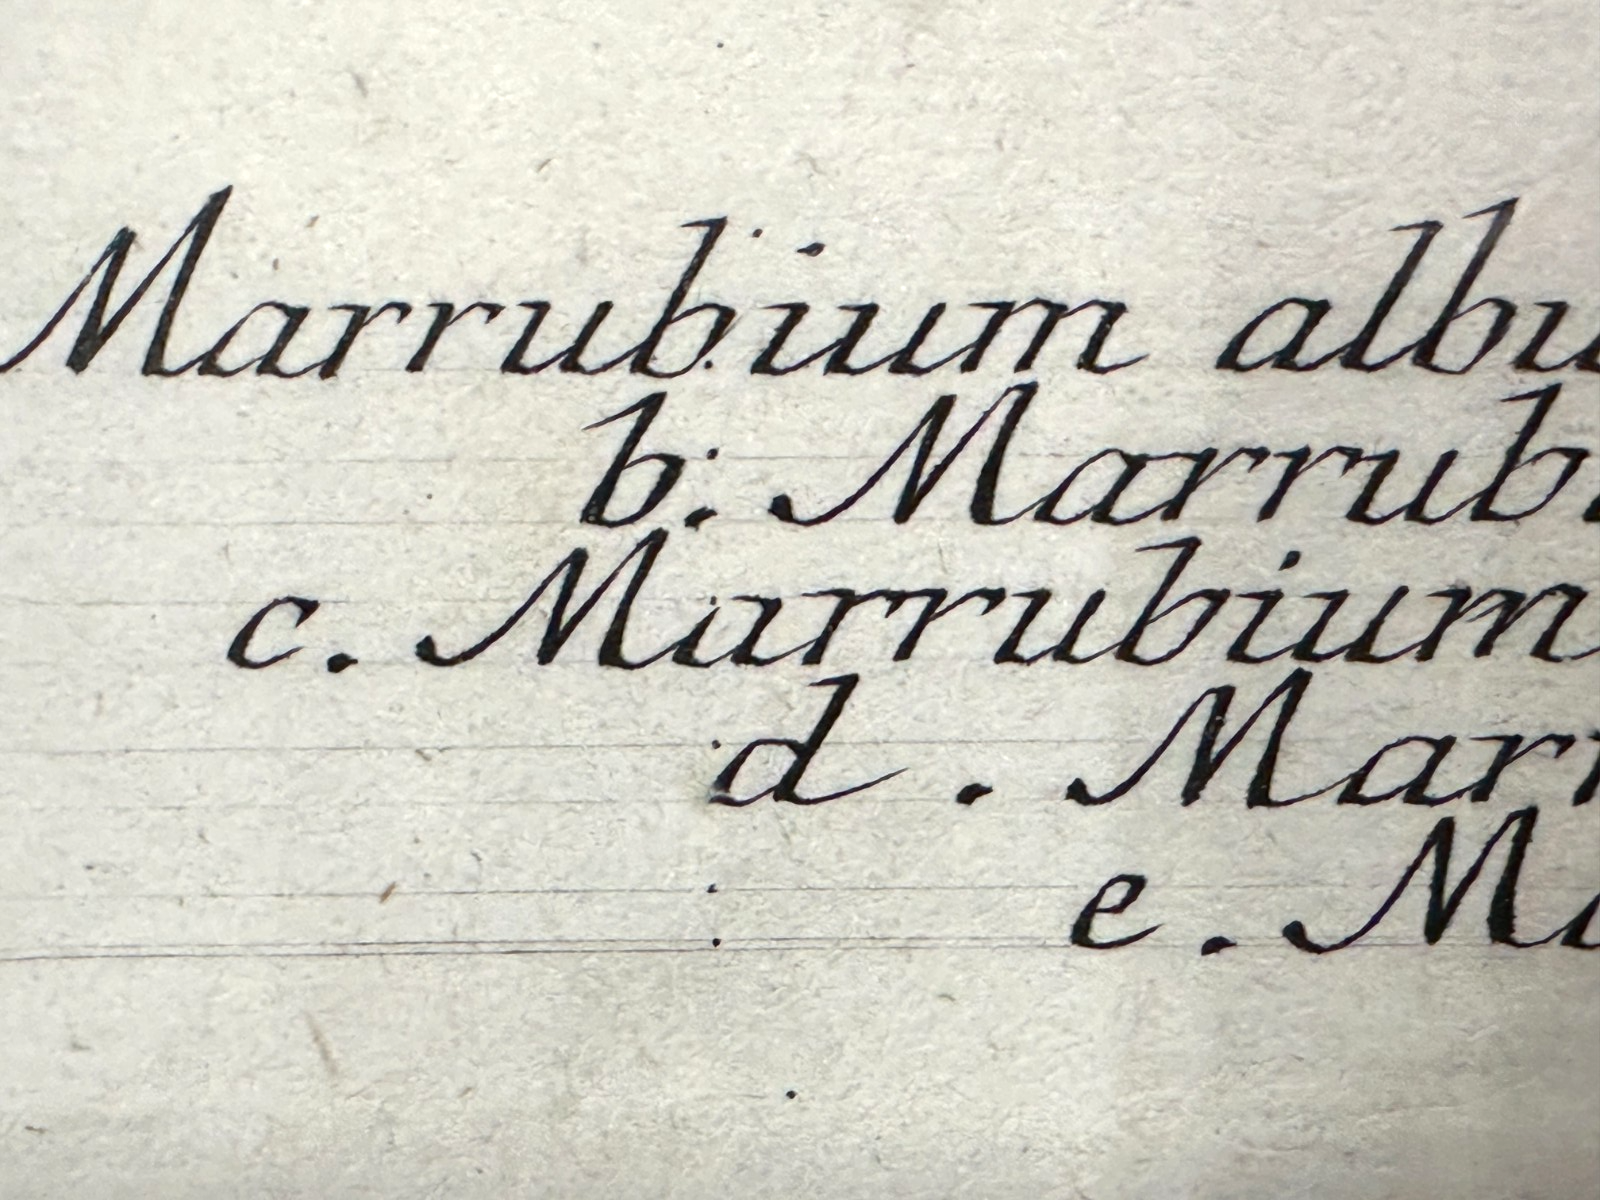 Marrubium albu
b. Marrubi
c. Marrubium
d. Marr
e. Ma